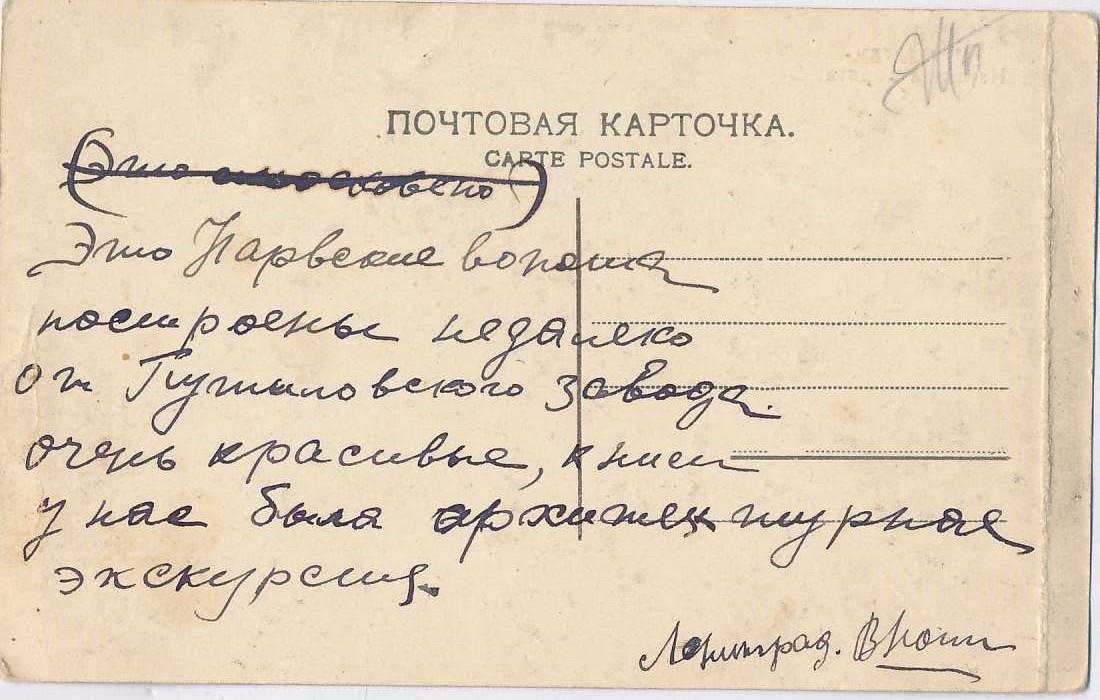 ПОЧТОВАЯ КАРТОЧКА.
CARTE POSTALE.
(Это
Это Нарвские ворота
построены недалеко
от Путиловского завода.
очень красивые, к ним
у нас была архитектурная
экскурсия.
Ленинград.